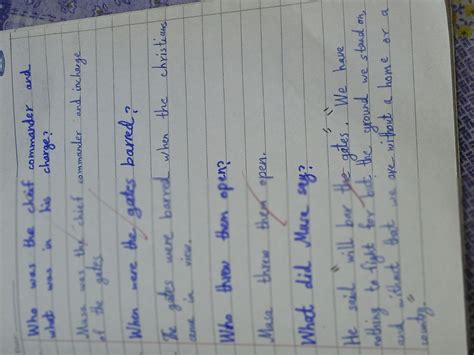 Who was the chief commander and
what was in his charge?
Musa was the chief commander and incharge
of the gates
When were the gates barred?
The gates were barred when the christians
came in view.
Who threw them open?
Musa threw them open.
What did Musa say?
He said will bar the gates. "We have
nothing to fight for but the ground we stand on,
and without that we are without a home or a
country.